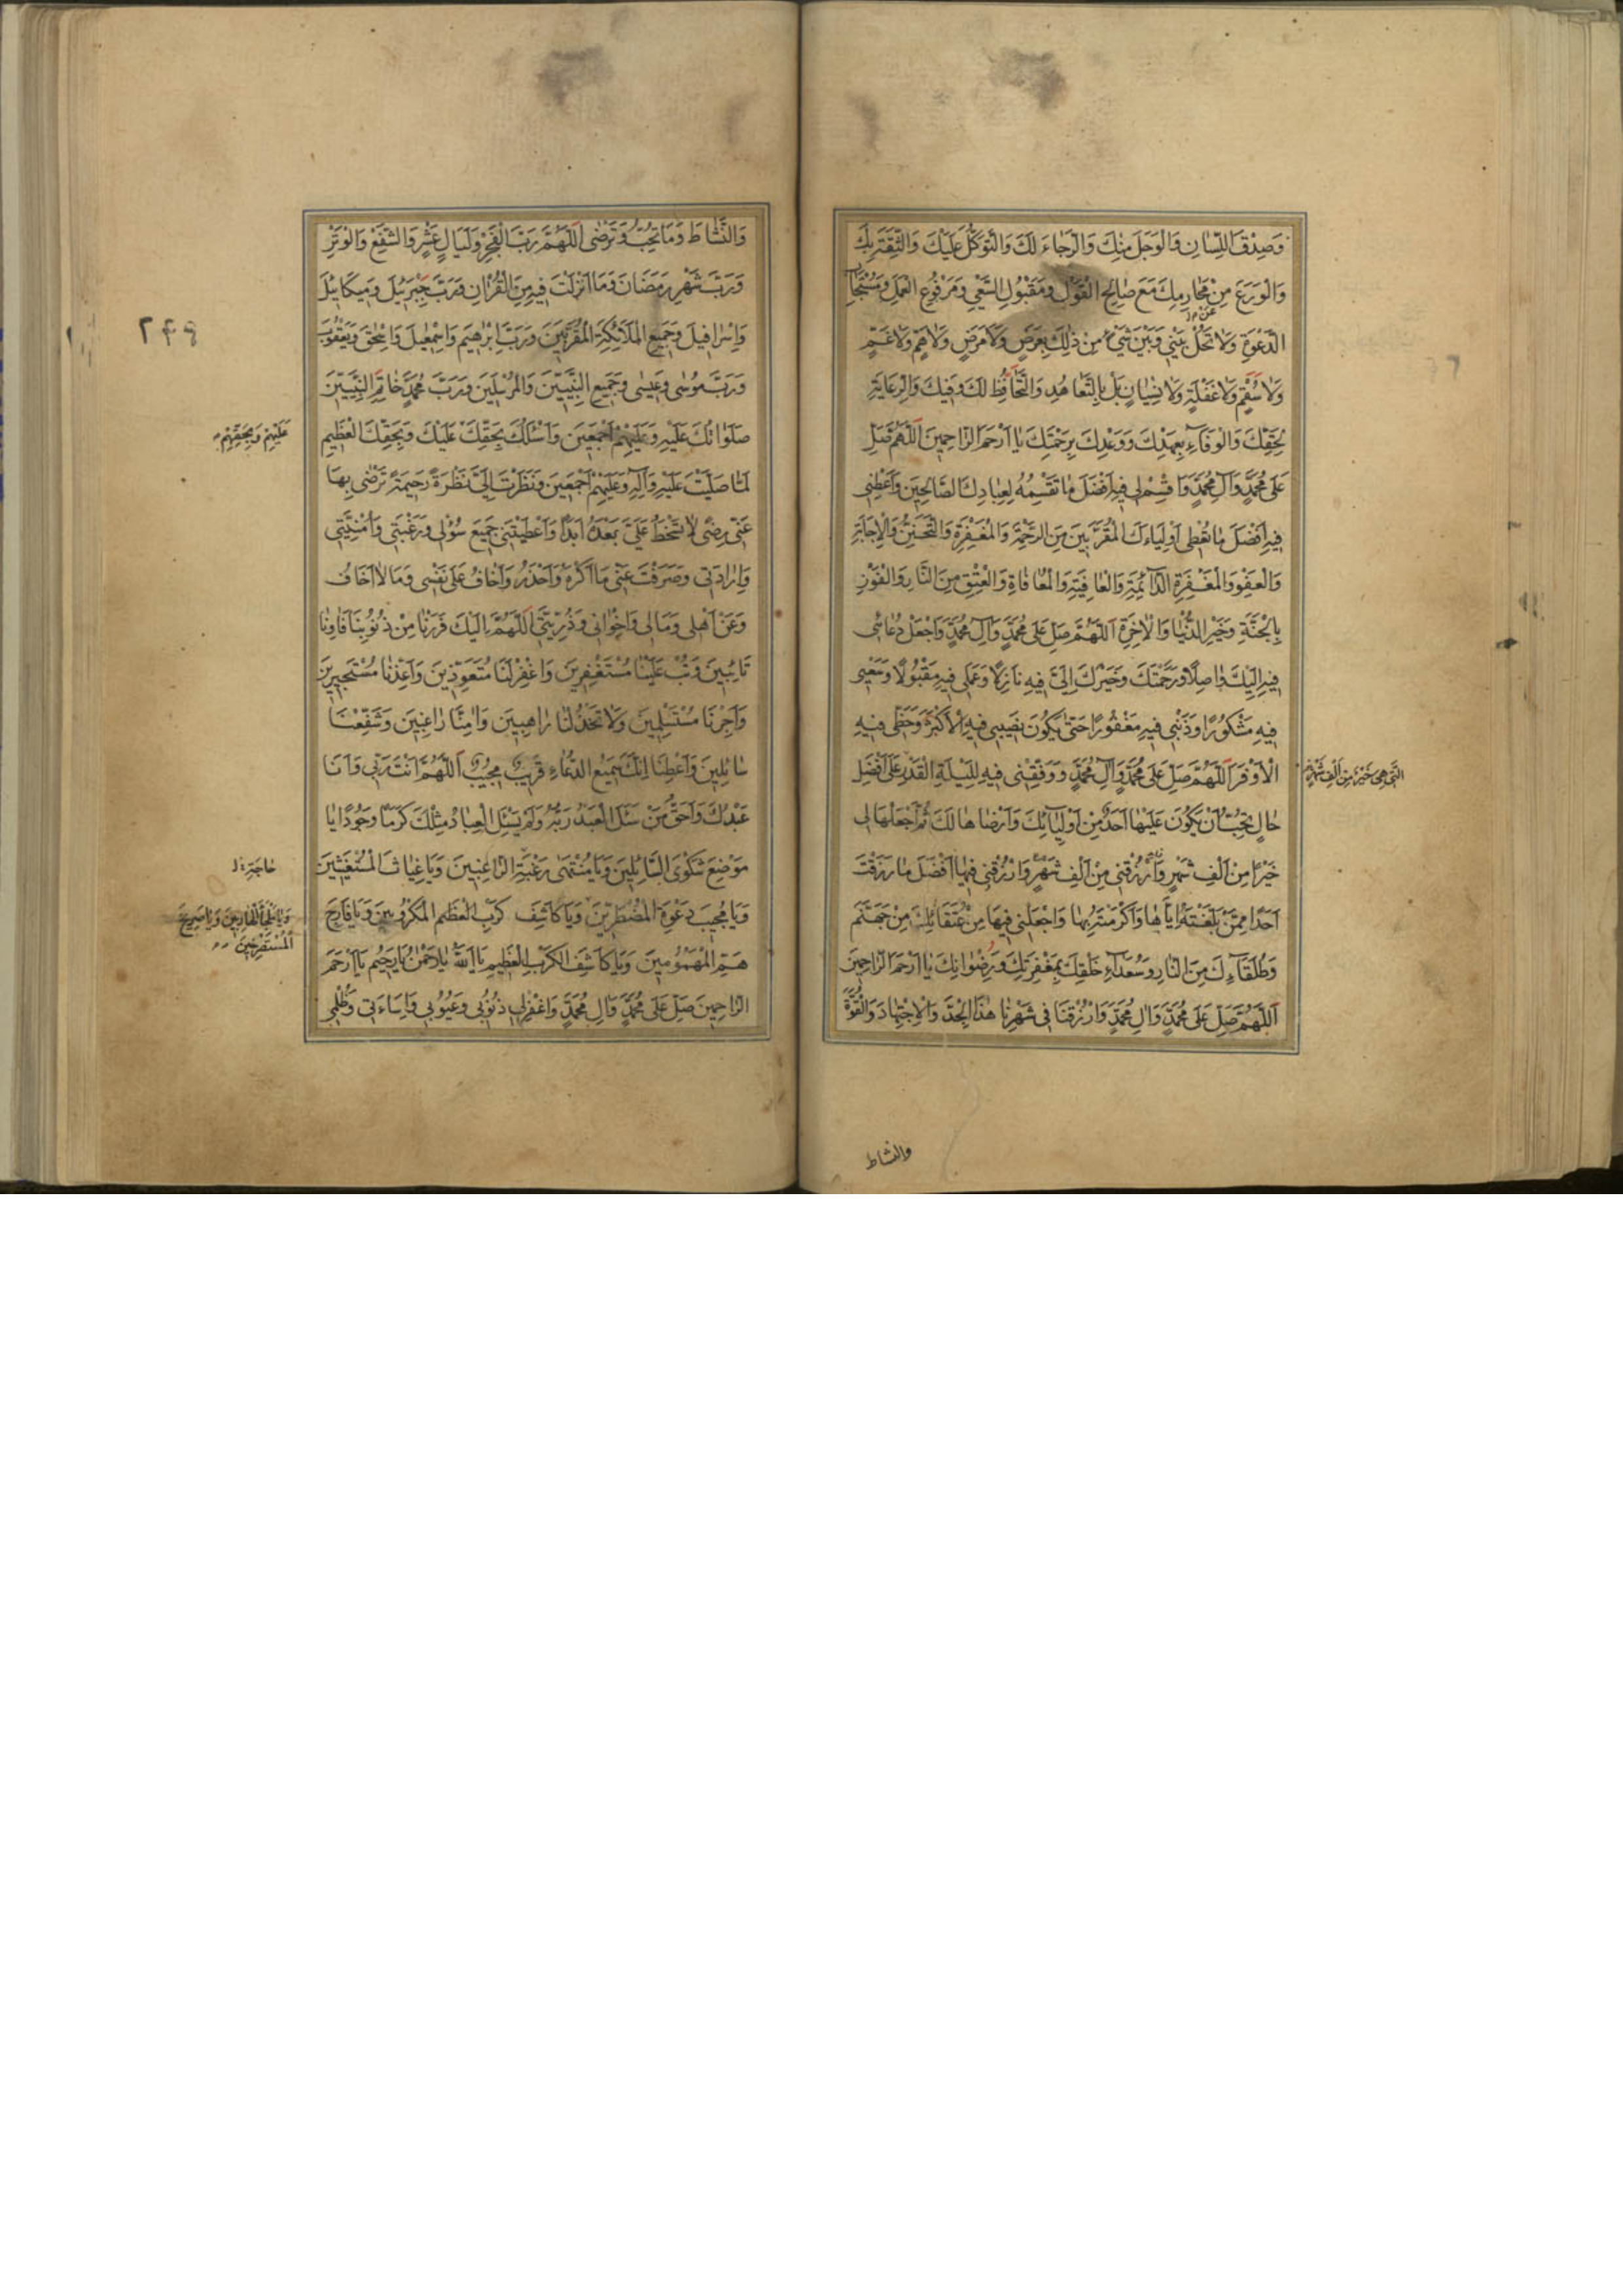 وَصِدْقَ اللِّسَانِ وَالْوَجَلَ مِنْكَ وَالرَّجَاءَ لَكَ وَالتَّوَكُّلَ عَلَيْكَ وَالثِّقَةَ بِكَ
وَالْوَرَعَ عَنْ مَحَارِمِكَ مَعَ صَالِحِ الْقَوْلِ وَمَقْبُولِ السَّعْيِ وَمَرْفُوعِ الْعَمَلِ وَمُسْتَجَابِ
الدَّعْوَةِ وَلَا تَحُلْ بَيْنِي وَبَيْنَ شَيْءٍ مِنْ ذٰلِكَ بِعَرَضٍ وَلَا مَرَضٍ وَلَا هَمٍّ وَلَا غَمٍّ
وَلَا سُقْمٍ وَلَا غَفْلَةٍ وَلَا نِسْيَانٍ بَلْ بِالتَّعَاهُدِ وَالتَّحَافُظِ لَكَ وَفِيكَ وَالرِّعَايَةِ
لِحَقِّكَ وَالْوَفَاءِ بِعَهْدِكَ وَوَعْدِكَ بِرَحْمَتِكَ يَا أَرْحَمَ الرَّاحِمِينَ اَللّٰهُمَّ صَلِّ
عَلَى مُحَمَّدٍ وَآلِ مُحَمَّدٍ وَاقْسِمْ لِي فِيهِ أَفْضَلَ مَا تَقْسِمُهُ لِعِبَادِكَ الصَّالِحِينَ وَأَعْطِنِي
فِيهِ أَفْضَلَ مَا تُعْطِي أَوْلِيَاءَكَ الْمُقَرَّبِينَ مِنَ الرَّحْمَةِ وَالْمَغْفِرَةِ وَالتَّحَنُّنِ وَالْإِجَابَةِ
وَالْعَفْوِ وَالْمَغْفِرَةِ الدَّائِمَةِ وَالْعَافِيَةِ وَالْمُعَافَاةِ وَالْعِتْقِ مِنَ النَّارِ وَالْفَوْزِ
بِالْجَنَّةِ وَخَيْرِ الدُّنْيَا وَالْآخِرَةِ اَللّٰهُمَّ صَلِّ عَلَى مُحَمَّدٍ وَآلِ مُحَمَّدٍ وَاجْعَلْ دُعَائِي
فِيهِ إِلَيْكَ وَاصِلًا وَرَحْمَتَكَ وَخَيْرَكَ إِلَيَّ فِيهِ نَازِلًا وَعَمَلِي فِيهِ مَقْبُولًا وَسَعْيِي
فِيهِ مَشْكُورًا وَذَنْبِي فِيهِ مَغْفُورًا حَتَّى يَكُونَ نَصِيبِي فِيهِ الْأَكْبَرَ وَحَظِّي فِيهِ
الْأَوْفَرَ اَللّٰهُمَّ صَلِّ عَلَى مُحَمَّدٍ وَآلِ مُحَمَّدٍ وَوَفِّقْنِي فِيهِ لِلَيْلَةِ الْقَدْرِ عَلَى أَفْضَلِ
الَّتِي هِيَ خَيْرٌ مِنْ أَلْفِ شَهْرٍ
حَالٍ تُحِبُّ أَنْ يَكُونَ عَلَيْهَا أَحَدٌ مِنْ أَوْلِيَائِكَ وَأَرْضَاهَا لَكَ ثُمَّ اجْعَلْهَا لِي
خَيْرًا مِنْ أَلْفِ شَهْرٍ وَارْزُقْنِي مِنْ أَلْفِ شَهْرٍ وَارْزُقْنِي فِيهَا أَفْضَلَ مَا رَزَقْتَ
أَحَدًا مِمَّنْ بَلَّغْتَهُ إِيَّاهَا وَأَكْرَمْتَهُ بِهَا وَاجْعَلْنِي فِيهَا مِنْ عُتَقَائِكَ مِنْ جَهَنَّمَ
وَطُلَقَاءِكَ مِنَ النَّارِ وَسُعَدَاءِ خَلْقِكَ بِمَغْفِرَتِكَ وَرِضْوَانِكَ يَا أَرْحَمَ الرَّاحِمِينَ
اَللّٰهُمَّ صَلِّ عَلَى مُحَمَّدٍ وَآلِ مُحَمَّدٍ وَارْزُقْنَا فِي شَهْرِنَا هٰذَا الْجِدَّ وَالْاِجْتِهَادَ وَالْقُوَّةَ
والنشاط
وَالنَّشَاطَ وَمَا تُحِبُّ وَتَرْضَى اَللّٰهُمَّ رَبَّ الْفَجْرِ وَلَيَالٍ عَشْرٍ وَالشَّفْعِ وَالْوَتْرِ
وَرَبَّ شَهْرِ رَمَضَانَ وَمَا أَنْزَلْتَ فِيهِ مِنَ الْقُرْآنِ وَرَبَّ جَبْرَئِيلَ وَمِيكَائِيلَ
وَإِسْرَافِيلَ وَجَمِيعِ الْمَلَائِكَةِ الْمُقَرَّبِينَ وَرَبَّ إِبْرٰهِيمَ وَإِسْمٰعِيلَ وَإِسْحٰقَ وَيَعْقُوبَ
۲۴۹
وَرَبَّ مُوسَى وَعِيسَى وَجَمِيعِ النَّبِيِّينَ وَالْمُرْسَلِينَ وَرَبَّ مُحَمَّدٍ خَاتَمِ النَّبِيِّينَ
صَلَوَاتُكَ عَلَيْهِ وَعَلَيْهِمْ أَجْمَعِينَ وَأَسْئَلُكَ بِحَقِّكَ عَلَيْكَ وَبِحَقِّكَ الْعَظِيمِ
عَلَيْهِمْ وَبِحَقِّهِمْ
لَمَّا صَلَّيْتَ عَلَيْهِ وَآلِهِ وَعَلَيْهِمْ أَجْمَعِينَ وَنَظَرْتَ إِلَيَّ نَظْرَةً رَحِيمَةً تَرْضَى بِهَا
عَنِّي رِضًى لَا تَسْخَطُ عَلَيَّ بَعْدَهُ أَبَدًا وَأَعْطَيْتَنِي جَمِيعَ سُؤْلِي وَرَغْبَتِي وَأُمْنِيَّتِي
وَإِرَادَتِي وَصَرَفْتَ عَنِّي مَا أَكْرَهُ وَأَحْذَرُ وَأَخَافُ عَلَى نَفْسِي وَمَا لَا أَخَافُ
وَعَنْ أَهْلِي وَمَالِي وَإِخْوَانِي وَذُرِّيَّتِي اَللّٰهُمَّ إِلَيْكَ فَرَرْنَا مِنْ ذُنُوبِنَا فَآوِنَا
تَائِبِينَ وَتُبْ عَلَيْنَا مُسْتَغْفِرِينَ وَاغْفِرْ لَنَا مُتَعَوِّذِينَ وَأَعِذْنَا مُسْتَجِيرِينَ
وَأَجِرْنَا مُسْتَسْلِمِينَ وَلَا تَخْذُلْنَا رَاهِبِينَ وَآمِنَّا رَاغِبِينَ وَشَفِّعْنَا
سَائِلِينَ وَأَعْطِنَا إِنَّكَ سَمِيعُ الدُّعَاءِ قَرِيبٌ مُجِيبٌ اَللّٰهُمَّ أَنْتَ رَبِّي وَأَنَا
عَبْدُكَ وَأَحَقُّ مَنْ سَئَلَ الْعَبْدُ رَبَّهُ وَلَمْ يَسْئَلِ الْعِبَادُ مِثْلَكَ كَرَمًا وَجُودًا يَا
مَوْضِعَ شَكْوَى السَّائِلِينَ وَيَا مُنْتَهَى رَغْبَةِ الرَّاغِبِينَ وَيَا غِيَاثَ الْمُسْتَغِيثِينَ
حَاجَةِ
وَيَا مُجِيبَ دَعْوَةِ الْمُضْطَرِّينَ وَيَا كَاشِفَ كَرْبِ الْعَظِيمِ الْمَكْرُوبِينَ وَيَا فَارِجَ
وَيَا مَلْجَأَ الْهَارِبِينَ وَيَا صَرِيخَ
الْمُسْتَصْرِخِينَ
هَمِّ الْمَهْمُومِينَ وَيَا كَاشِفَ الْكَرْبِ الْعَظِيمِ يَا اَللّٰهُ يَا رَحْمٰنُ يَا رَحِيمُ يَا أَرْحَمَ
الرَّاحِمِينَ صَلِّ عَلَى مُحَمَّدٍ وَآلِ مُحَمَّدٍ وَاغْفِرْ لِي ذُنُوبِي وَعُيُوبِي وَإِسَاءَتِي وَظُلْمِي